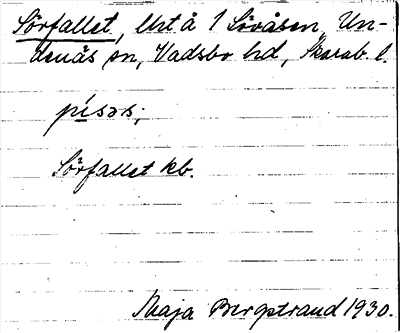 Sörfallet, lht å 1 Sövåsen, Un-
denäs sn, Vadsbo hd, Skarab. l.
písəs;
Sörfallet kb.
Maja Bergstrand 1930.